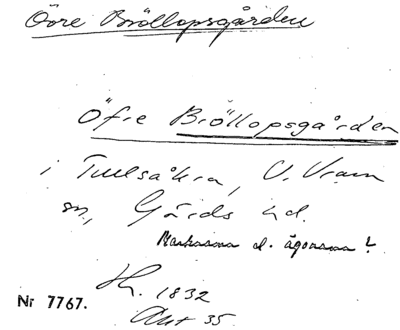 Övre Bröllopsgården
Öfre Bröllopsgården
i Tullsåkra, V. Vram
sn, Gärds hd.
Markerna el. ägorna?
H. 1832
Akt 35
Nr 7767.